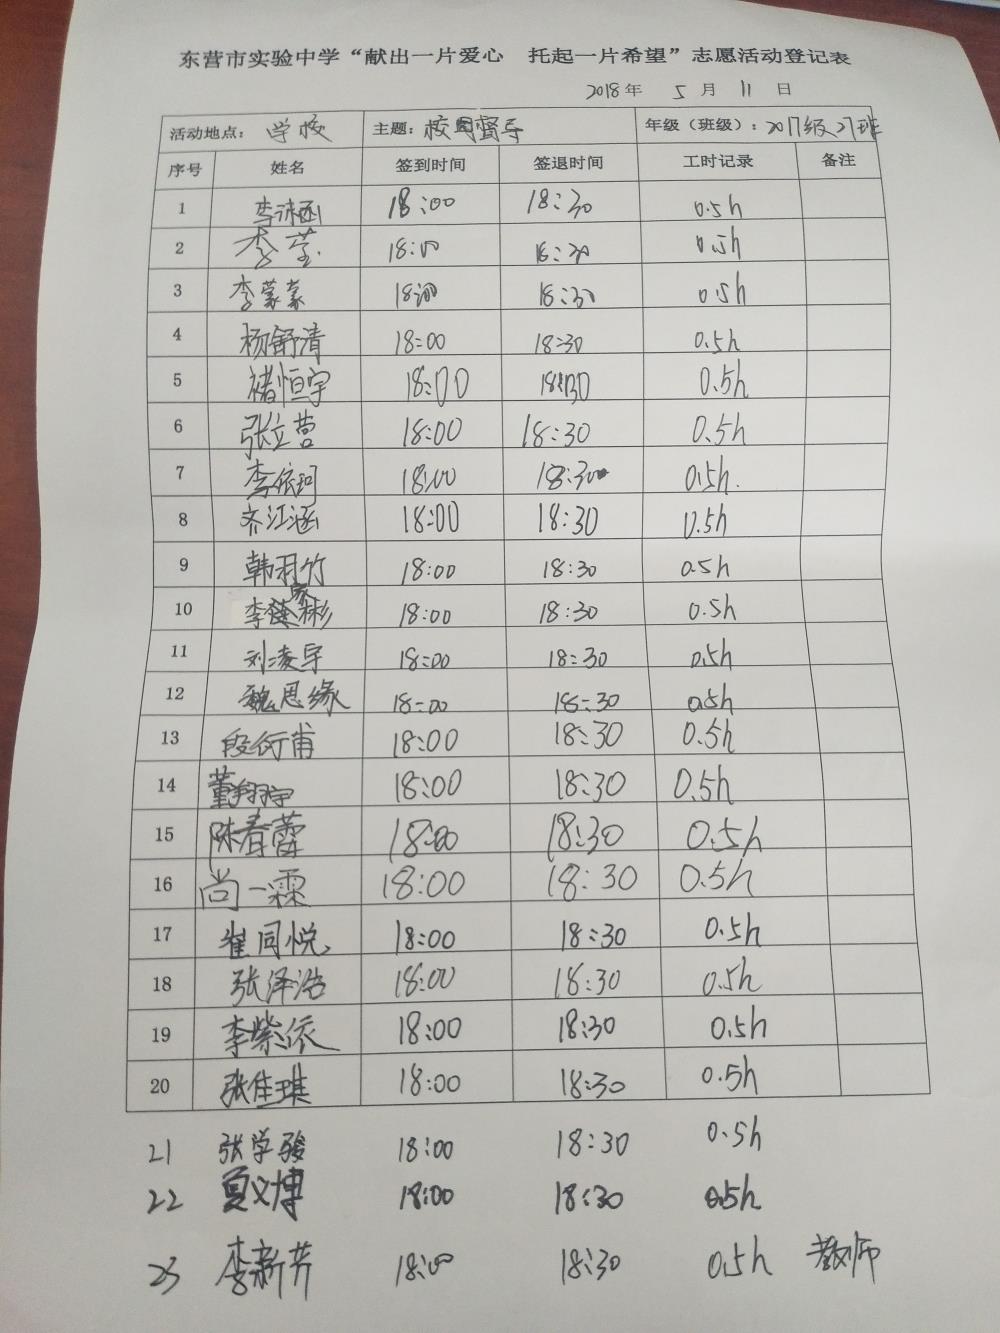 东营市实验中学“献出一片爱心 托起一片希望”志愿活动登记表
2018年 5 月 11 日
活动地点： 学校 主题： 校园督导 年级（班级）： 2017级27班
序号 姓名 签到时间 签退时间 工时记录 备注
1 李沐涵 18:00 18:30 0.5h
2 李莹 18:00 18:30 0.5h
3 李蒙蒙 18:00 18:30 0.5h
4 杨舒清 18:00 18:30 0.5h
5 褚恒宇 18:00 18:30 0.5h
6 张立营 18:00 18:30 0.5h
7 李依珂 18:00 18:30 0.5h.
8 齐江涵 18:00 18:30 0.5h
9 韩羽竹 18:00 18:30 0.5h
10 李家彬 18:00 18:30 0.5h
11 刘凌宇 18:00 18:30 0.5h
12 魏思缘 18:00 18:30 0.5h
13 段衍甫 18:00 18:30 0.5h
14 董翔宇 18:00 18:30 0.5h
15 陈春蕾 18:00 18:30 0.5h
16 尚一霖 18:00 18:30 0.5h
17 崔同悦 18:00 18:30 0.5h
18 张泽浩 18:00 18:30 0.5h
19 李紫依 18:00 18:30 0.5h
20 张佳琪 18:00 18:30 0.5h
21 张学骏 18:00 18:30 0.5h
22 夏义博 18:00 18:30 0.5h
23 李新芳 18:00 18:30 0.5h 教师